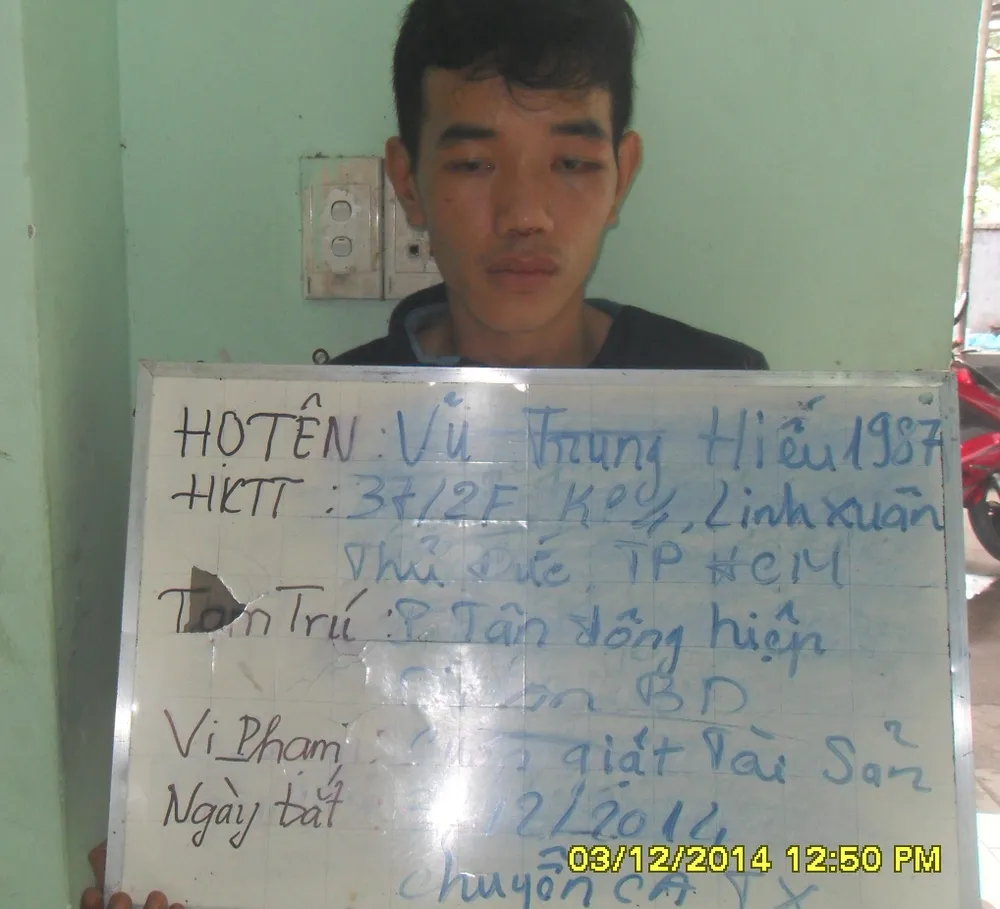 HỌ TÊN : Vũ Trung Hiếu 1987
HKTT : 37/2F Linh xuân
Thủ Đức TP HCM
Tạm Trú : P Tân đông hiệp
BD
Vi Phạm : giật Tài Sản
Ngày bắt 12/2014
chuyển CA TX
03/12/2014 12:50 PM